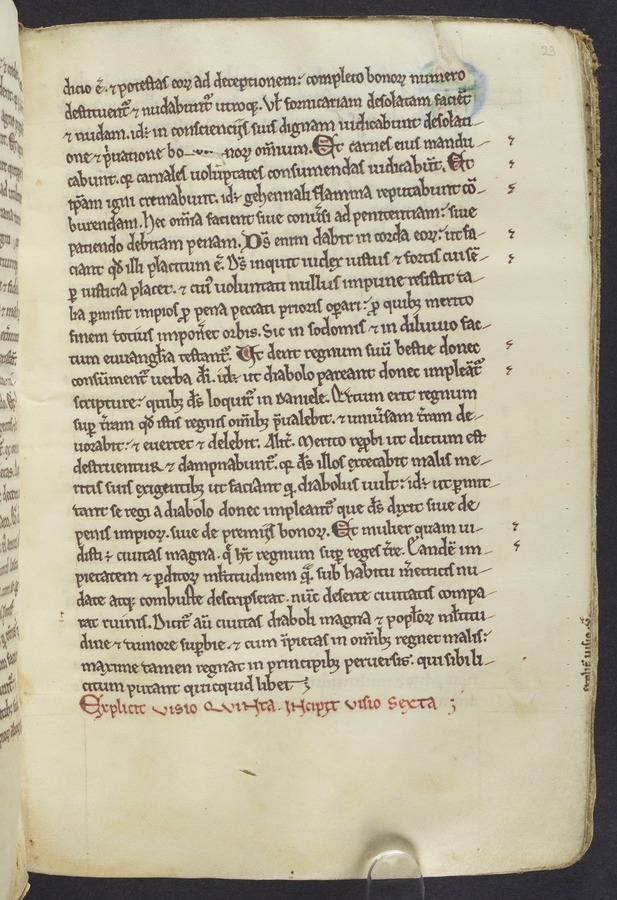 23
dicio ē. ⁊ potestas eoꝝ ad deceptionem: completo bonoꝝ numero
destituent̄ ⁊ nudabunt̄ utroq;. Vl̄ fornicariam desolatam facient̄
⁊ nudam. id; in conscienciis suis dignam iudicabunt desolati-
one ⁊ p̄uatione bo- noꝝ om̄ium. Et carnes eius mandu-
cabunt. q̄ carnales uoluptates consumendas iudicabūt. Et
ip̄am igni cremabunt. id; gehennali flamma reputabunt cō-
burendam. Hec om̄ia facient siue conūsi ad penitentiam: siue
patiendo debitam penam. D̄s enim dabit in corda eoꝝ: ut fa-
ciant qd̄ illi placitum ē. D̄s inquit iudex iustus ⁊ fortis cui sē-
ꝑ iusticia placet. ⁊ cui' uoluntati nullus impune resistit ta-
lia ꝑmisit impios ꝑ pena peccati prioris oꝑari: ꝑ quib; merito
finem totius imponet orbis. Sic in sodomis ⁊ in diluuio fac-
tum euuanglia testant̄. Et deut regnum suū bestie donec
consūment̄ uerba dī. id; ut diabolo pareant donec impleāt̄
scripture: quib; d̄s loquit̄ in daniele. Q̄rtum erit regnum
suꝑ t̄ram qd̄ istis regnis om̄ib; p̄ualebit. ⁊ uniūsam t̄ram de-
uorabit: ⁊ euertet ⁊ delebit. Alit̄. Merito rep̄bi ut dictum est
destruentur ⁊ dampnabunt̄. q̄ d̄s illos execabit malis me-
ritis suis exigentib; ut faciant q̄ diabolus uult: id; ut ꝑmit-
tant se regi a diabolo donec impleant̄ que d̄s dixit siue de
penis impioꝝ. siue de premiis bonoꝝ. Et mulier quam ui-
disti: ciuitas magna. q̄ ht̄ regnum suꝑ reges t̄re. Eandē im-
pietatem ⁊ ꝑditoꝝ mltitudinem q̄ sub habitu m̄etricis nu-
date atq; combuste descripserat. nūc deserte ciuitatis compa-
rat ruinis. Dicit̄ aū ciuitas diaboli magna ⁊ poploꝝ mltitu-
dine ⁊ tumore suꝑbie. ⁊ cum īpietas in om̄ib; regnet malis:
maxime tamen regnat in principib; peruersis. qui sibi li-
citum putant quicquid libet ;
Explicit visio QVINTA. INCIPIT visio Sexta ;